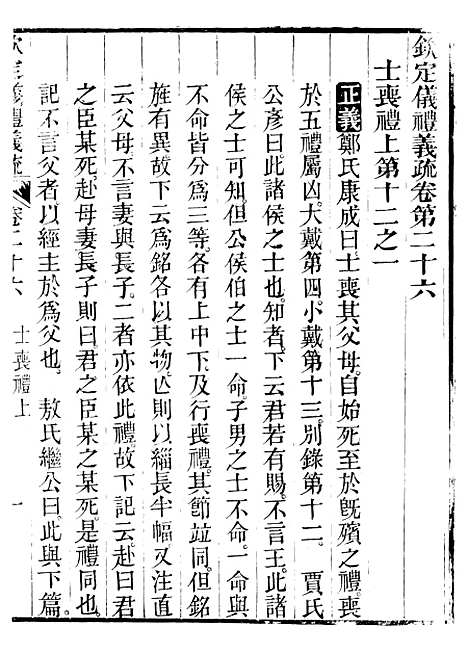 欽定儀禮義疏卷第二十六
士喪禮上第十二之一
正義鄭氏康成曰士喪其父母自始死至於既殯之禮喪
於五禮屬凶大戴第四小戴第十三別錄第十二 賈氏
公彥曰此諸侯之士也知者下云君若有賜不言王此諸
侯之士可知但公侯伯之士一命子男之士不命一命與
不命皆分爲三等各有上中下及行喪禮其節竝同但銘
旌有異故下云爲銘各以其物亾則以緇長半幅又注直
云父母不言妻與長子二者亦依此禮故下記云赴曰君
之臣某死赴母妻長子則曰君之臣某之某死是禮同也
記不言父者以經主於爲父也 敖氏繼公曰此與下篇
欽定儀禮義疏 卷二十六 士喪禮上 一